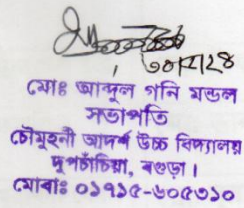 ৩০।১।২৪
মোঃ আব্দুল গনি মন্ডল
সভাপতি
চৌমুহনী আদর্শ উচ্চ বিদ্যালয়
দুপচাঁচিয়া, বগুড়া।
মোবাঃ ০১৭১৫-৬০৫৩১০